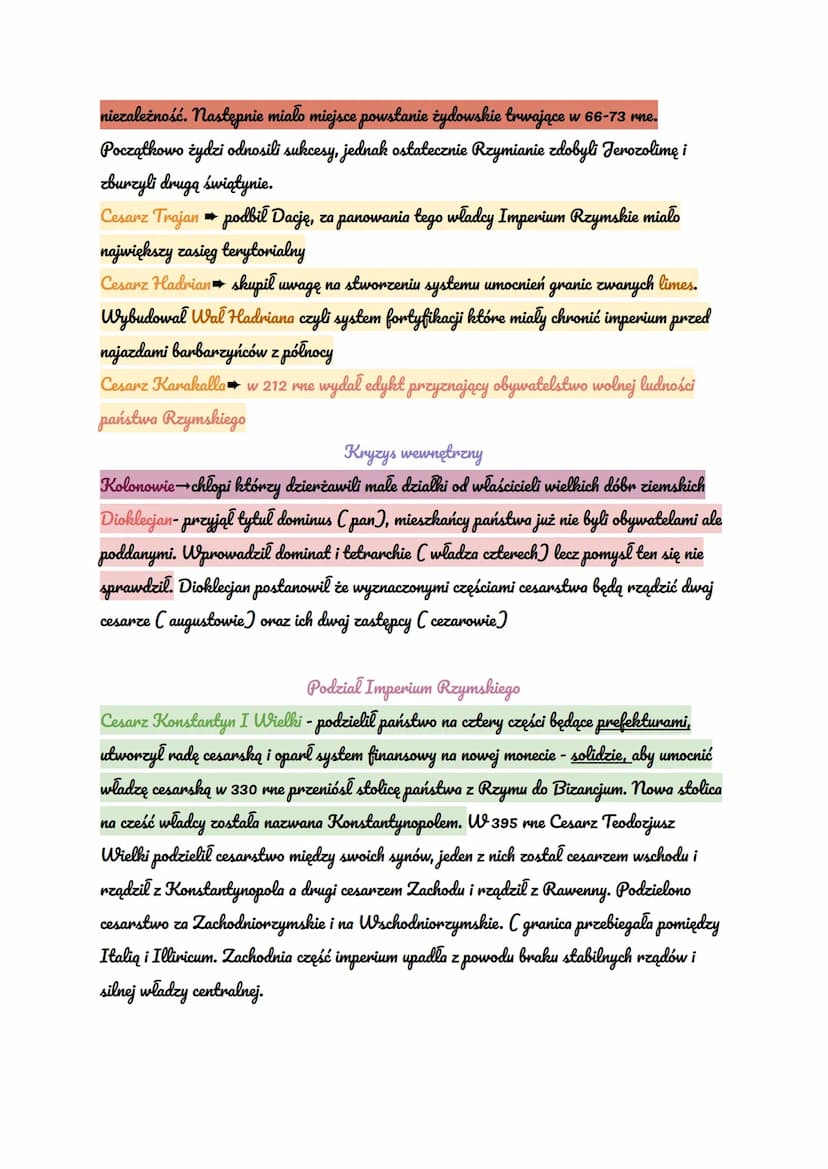 niezależność. Następnie miało miejsce powstanie żydowskie trwające w 66-73 rne.
Początkowo żydzi odnosili sukcesy, jednak ostatecznie Rzymianie zdobyli Jerozolimę i
zburzyli drugą świątynie.
Cesarz Trajan ➨ podbił Dację, za panowania tego władcy Imperium Rzymskie miało
największy zasięg terytorialny
Cesarz Hadrian➨ skupił uwagę na stworzeniu systemu umocnień granic zwanych limes.
Wybudował Wał Hadriana czyli system fortyfikacji które miały chronić imperium przed
najazdami barbarzyńców z północy
Cesarz Karakalla➨ w 212 rne wydał edykt przyznający obywatelstwo wolnej ludności
państwa Rzymskiego
Kryzys wewnętrzny
Kolonowie→chłopi którzy dzierżawili małe działki od właścicieli wielkich dóbr ziemskich
Dioklecjan- przyjął tytuł dominus ( pan), mieszkańcy państwa już nie byli obywatelami ale
poddanymi. Wprowadził dominat i tetrarchie ( władza czterech) lecz pomysł ten się nie
sprawdził. Dioklecjan postanowił że wyznaczonymi częściami cesarstwa będą rządzić dwaj
cesarze ( augustowie) oraz ich dwaj zastępcy ( cezarowie)
Podział Imperium Rzymskiego
Cesarz Konstantyn I Wielki - podzielił państwo na cztery części będące prefekturami,
utworzył radę cesarską i oparł system finansowy na nowej monecie - solidzie, aby umocnić
władzę cesarską w 330 rne przeniósł stolicę państwa z Rzymu do Bizancjum. Nowa stolica
na cześć władcy została nazwana Konstantynopolem. W 395 rne Cesarz Teodozjusz
Wielki podzielił cesarstwo między swoich synów, jeden z nich został cesarzem wschodu i
rządził z Konstantynopola a drugi cesarzem Zachodu i rządził z Rawenny. Podzielono
cesarstwo za Zachodniorzymskie i na Wschodniorzymskie. ( granica przebiegała pomiędzy
Italią i Illiricum. Zachodnia część imperium upadła z powodu braku stabilnych rządów i
silnej władzy centralnej.